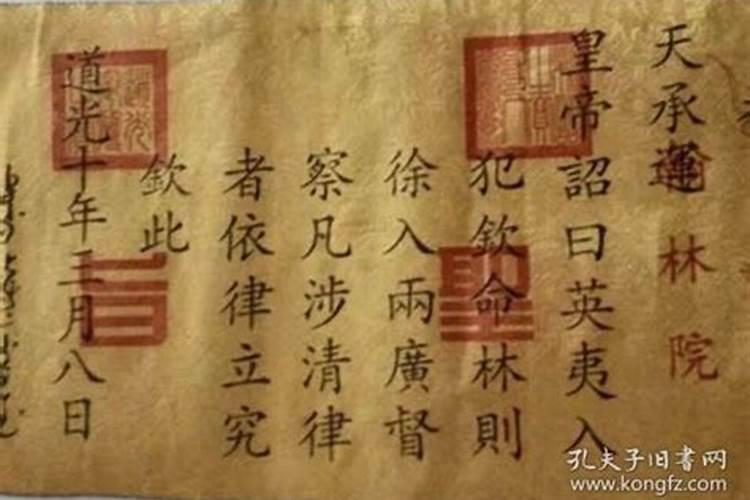 天承運
皇帝詔曰英夷入
犯欽命林則
徐入兩廣督
察凡涉清律
者依律立究
欽此
道光十年三月八日
林院
聖
旨
孔夫子旧書网
www.kongfz.com